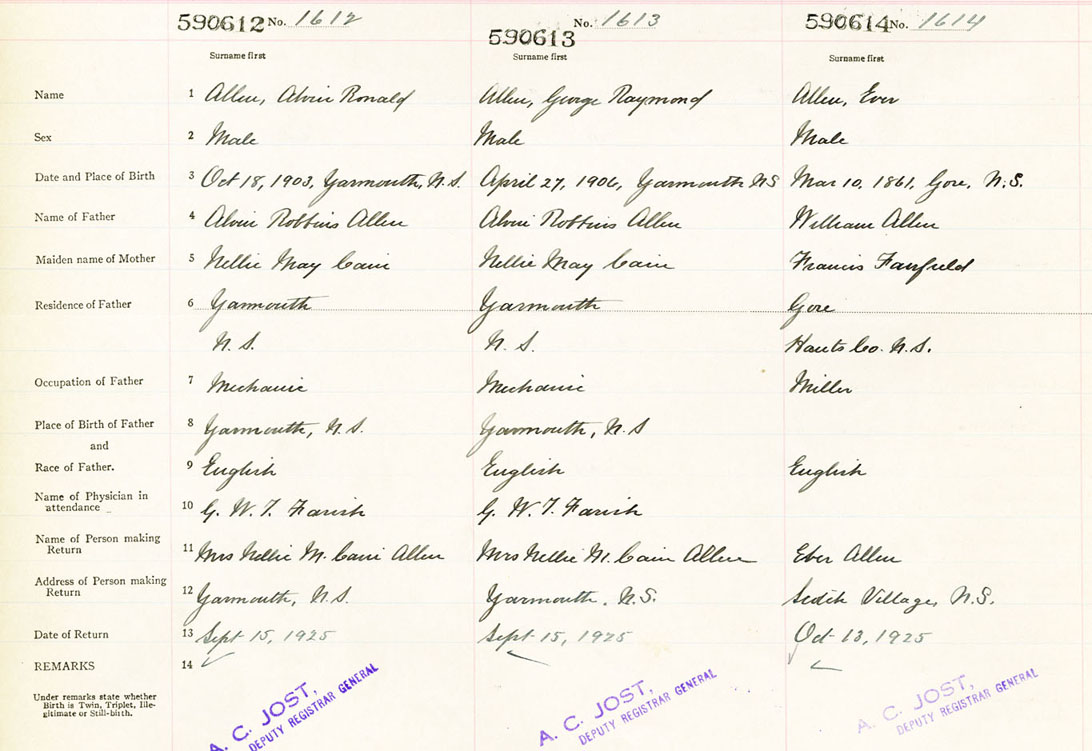 590612 No. 1612 No. 1613 590614 No. 1614
590613
Surname first Surname first Surname first
Name 1 Allen, Alvin Ronald Allen, George Raymond Allen, Eber
Sex 2 Male Male Male
Date and Place of Birth 3 Oct 18, 1903, Yarmouth, N.S. April 27, 1906, Yarmouth NS Mar 10, 1861, Gore, N.S.
Name of Father 4 Alvin Robbins Allen Alvin Robbins Allen William Allen
Maiden name of Mother 5 Nellie May Cain Nellie May Cain Francis
Residence of Father 6 Yarmouth Yarmouth Gore
N. S. N. S. Hants Co. N.S.
Occupation of Father 7 Mechanic Mechanic Miller
Place of Birth of Father 8 Yarmouth, N.S. Yarmouth, N.S
and
Race of Father. 9 English English English
Name of Physician in
attendance 10 G. W. T. Farish G. W. T. Farish
Name of Person making
Return 11 Mrs Nellie M. Cain Allen Mrs Nellie M. Cain Allen Eber Allen
Address of Person making
Return 12 Yarmouth, N.S. Yarmouth, N.S. Village, N.S.
Date of Return 13 Sept 15, 1925 Sept 15, 1925 Oct 13, 1925
REMARKS 14
Under remarks state whether
Birth is Twin, Triplet, Ille-
gitimate or Still-birth.
A. C. JOST, A. C. JOST, A. C. JOST,
DEPUTY REGISTRAR GENERAL DEPUTY REGISTRAR GENERAL DEPUTY REGISTRAR GENERAL